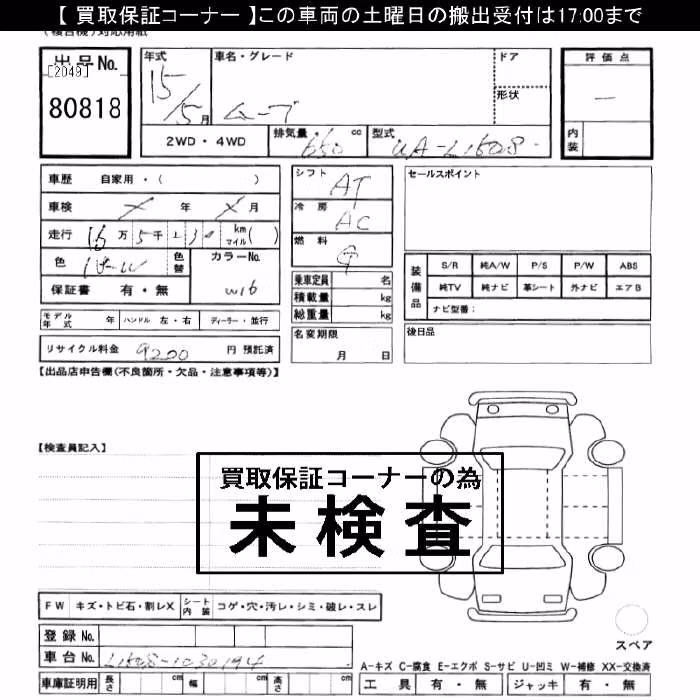 【 買取保証コーナー 】この車両の土曜日の搬出受付は17:00まで
出品No.
[2049]
80818
年式
15/5月
車名・グレード
ムーブ
ドア
形状
評価点
—
内装
2WD・4WD
排気量・ cc
650
型式
UA-L150S
車歴 自家用・( )
車検 年 月
走行 16万5千 km マイル( )
色
色替
カラーNo.
W16
保証書 有・無
シフト AT
冷房 AC
燃料
乗車定員 名
積載量 kg
総重量 kg
名変期限
月 日
セールスポイント
装備品
S/R 純A/W P/S P/W ABS
純TV 純ナビ 革シート 外ナビ エアB
ナビ型番:
後日品
モデル年式 年 ハンドル 左・右 ディーラー・並行
リサイクル料金 9200 円 預託済
【出品店申告欄(不良箇所・欠品・注意事項等)】
【検査員記入】
買取保証コーナーの為
未検査
FW キズ・トビ石・割レX シート内装 コゲ・穴・汚レ・シミ・破レ・スレ
スペア
登録No.
車台No. L150S-1030194
A-キズ C-腐食 E-エクボ S-サビ U-凹ミ W-補修 XX-交換済
車庫証明用 長さ cm 幅 cm 高さ cm
工具 有・無 ジャッキ 有・無